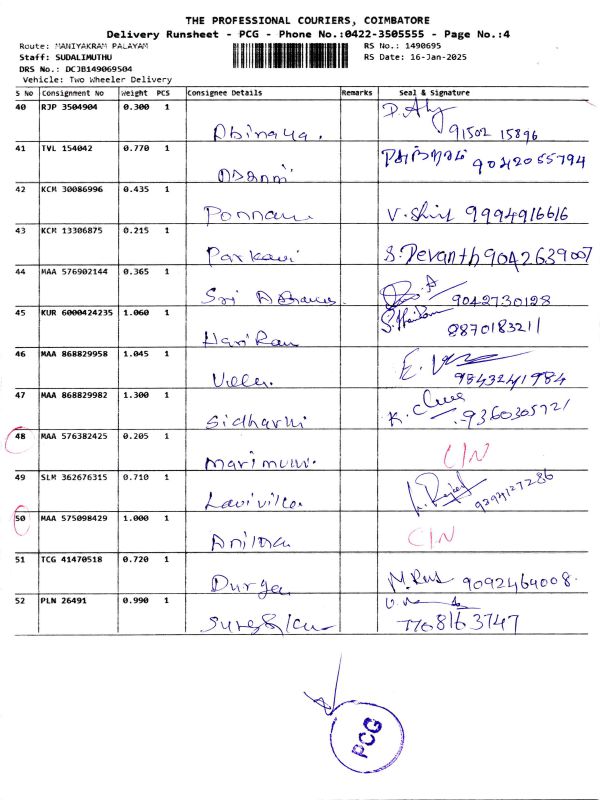 THE PROFESSIONAL COURIERS, COIMBATORE
Delivery Runsheet - PCG - Phone No.:0422-3505555 - Page No.:4
Route: MANIYAKRAM PALAYAM RS No.: 1490695
Staff: SUDALIMUTHU RS Date: 16-Jan-2025
DRS No.: DCJB149069504
Vehicle: Two Wheeler Delivery
S No Consignment No Weight PCS Consignee Details Remarks Seal & Signature
40 RJP 3504904 0.300 1
Abinaya. 91502 15896
41 TVL 154042 0.770 1
9042055794
42 KCM 30086996 0.435 1
V. 9994916616
43 KCM 13306875 0.215 1
Parkavi S. Devanth 9042639007
44 MAA 576902144 0.365 1
Sri 9042730128
45 KUR 6000424235 1.060 1
Hari Ran 8870183211
46 MAA 868829958 1.045 1
E. 9843241984
47 MAA 868829982 1.300 1
Sidharth K. 9360305721
48 MAA 576382425 0.205 1
C/N
49 SLM 362676315 0.710 1
50 MAA 575098429 1.000 1
C/N
51 TCG 41470518 0.720 1
Durga M. 9092464008.
52 PLN 26491 0.990 1
7708163747
PCG